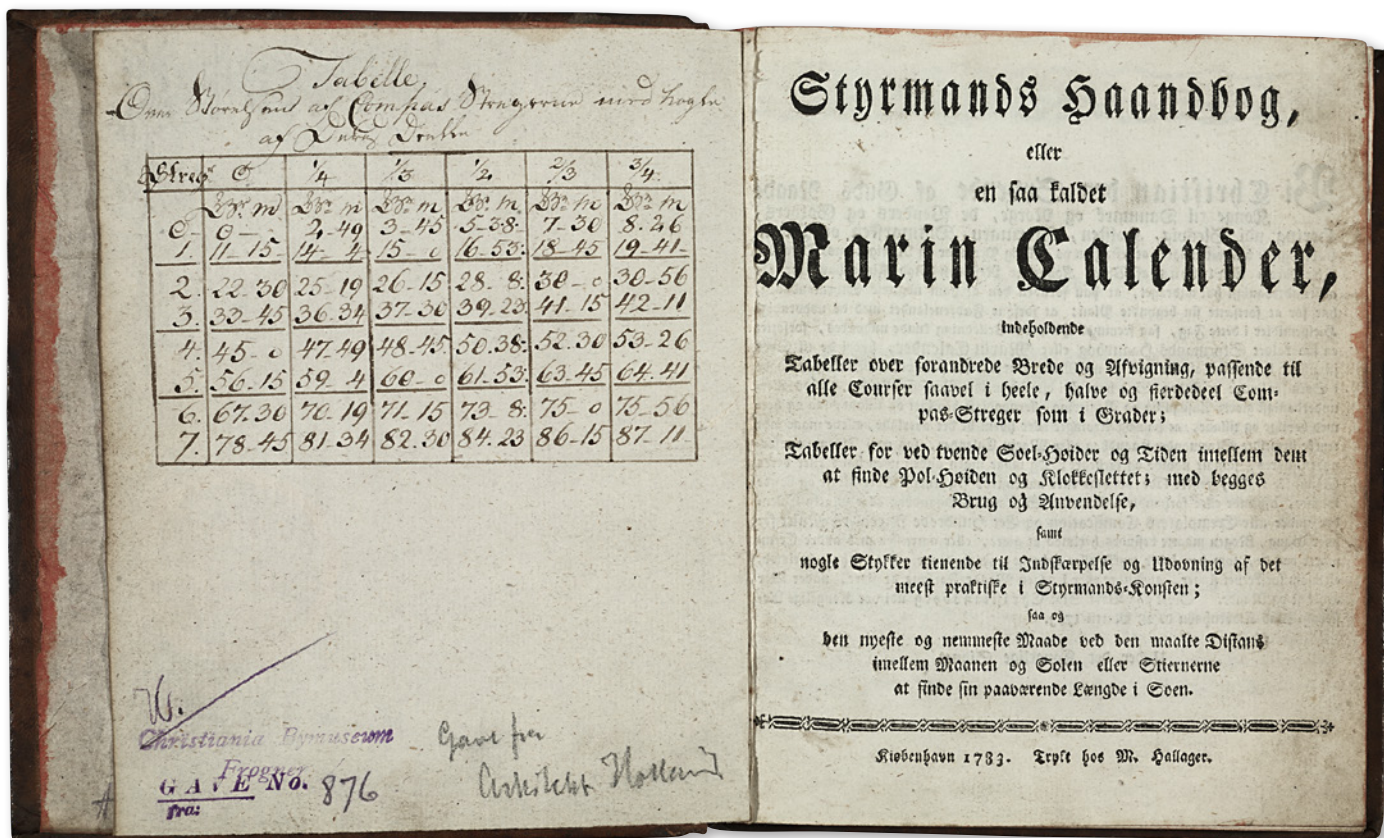 Tabelle
Over Størelsen af Compas Stregerne med nogle
af Deres Deele
Streg 0. 1/4 1/3 1/2 2/3 3/4
Gr: m Gr: m Gr: m Gr: m Gr: m Gr: m
0 0 - 2-49 3-45 5-38 7-30 8-26
1. 11-15 14-4 15-0 16-53 18-45 19-41
2. 22-30 25-19 26-15 28-8 30-0 30-56
3. 33-45 36-34 37-30 39-23 41-15 42-11
4. 45-0 47-49 48-45 50-38 52-30 53-26
5. 56-15 59-4 60-0 61-53 63-45 64-41
6. 67-30 70-19 71-15 73-8 75-0 75-56
7. 78-45 81-34 82-30 84-23 86-15 87-11
Christiania Bymuseum
Frogner
GAVE No. 876
fra:
Gave fra
Arkitekt Holland
Styrmands Haandbog,
eller
en saa kaldet
Marin Calender,
indeholdende
Tabeller over forandrede Brede og Afvigning, passende til
alle Courser saavel i heele, halve og fierdedeel Com-
pas-Streger som i Grader;
Tabeller for ved tvende Soel-Høider og Tiden imellem dem
at finde Pol-Høiden og Klokkeslettet; med begges
Brug og Anvendelse,
samt
nogle Stykker tienende til Indskærpelse og Udøvning af det
meest praktiske i Styrmands-Konsten;
saa og
den nyeste og nemmeste Maade ved den maalte Distans
imellem Maanen og Solen eller Stiernerne
at finde sin paaværende Længde i Søen.
Kiøbenhavn 1783. Trykt hos M. Hallager.